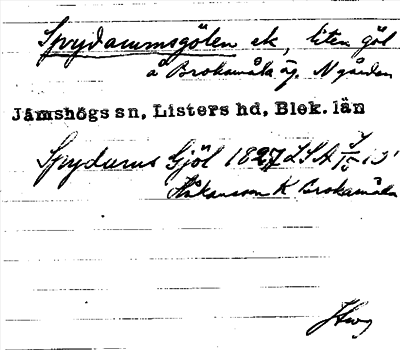 Sprydarumsgölen ek, liten göl
å Brokamåla äg. N gården
Jämshögs sn, Listers hd, Blek. län
Spydurns Gjöl 1827 LSA
Håkansson K Brokamåla